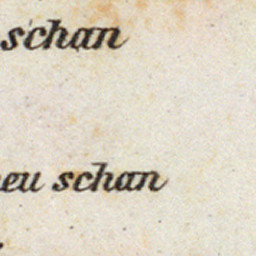 schan
eu schan